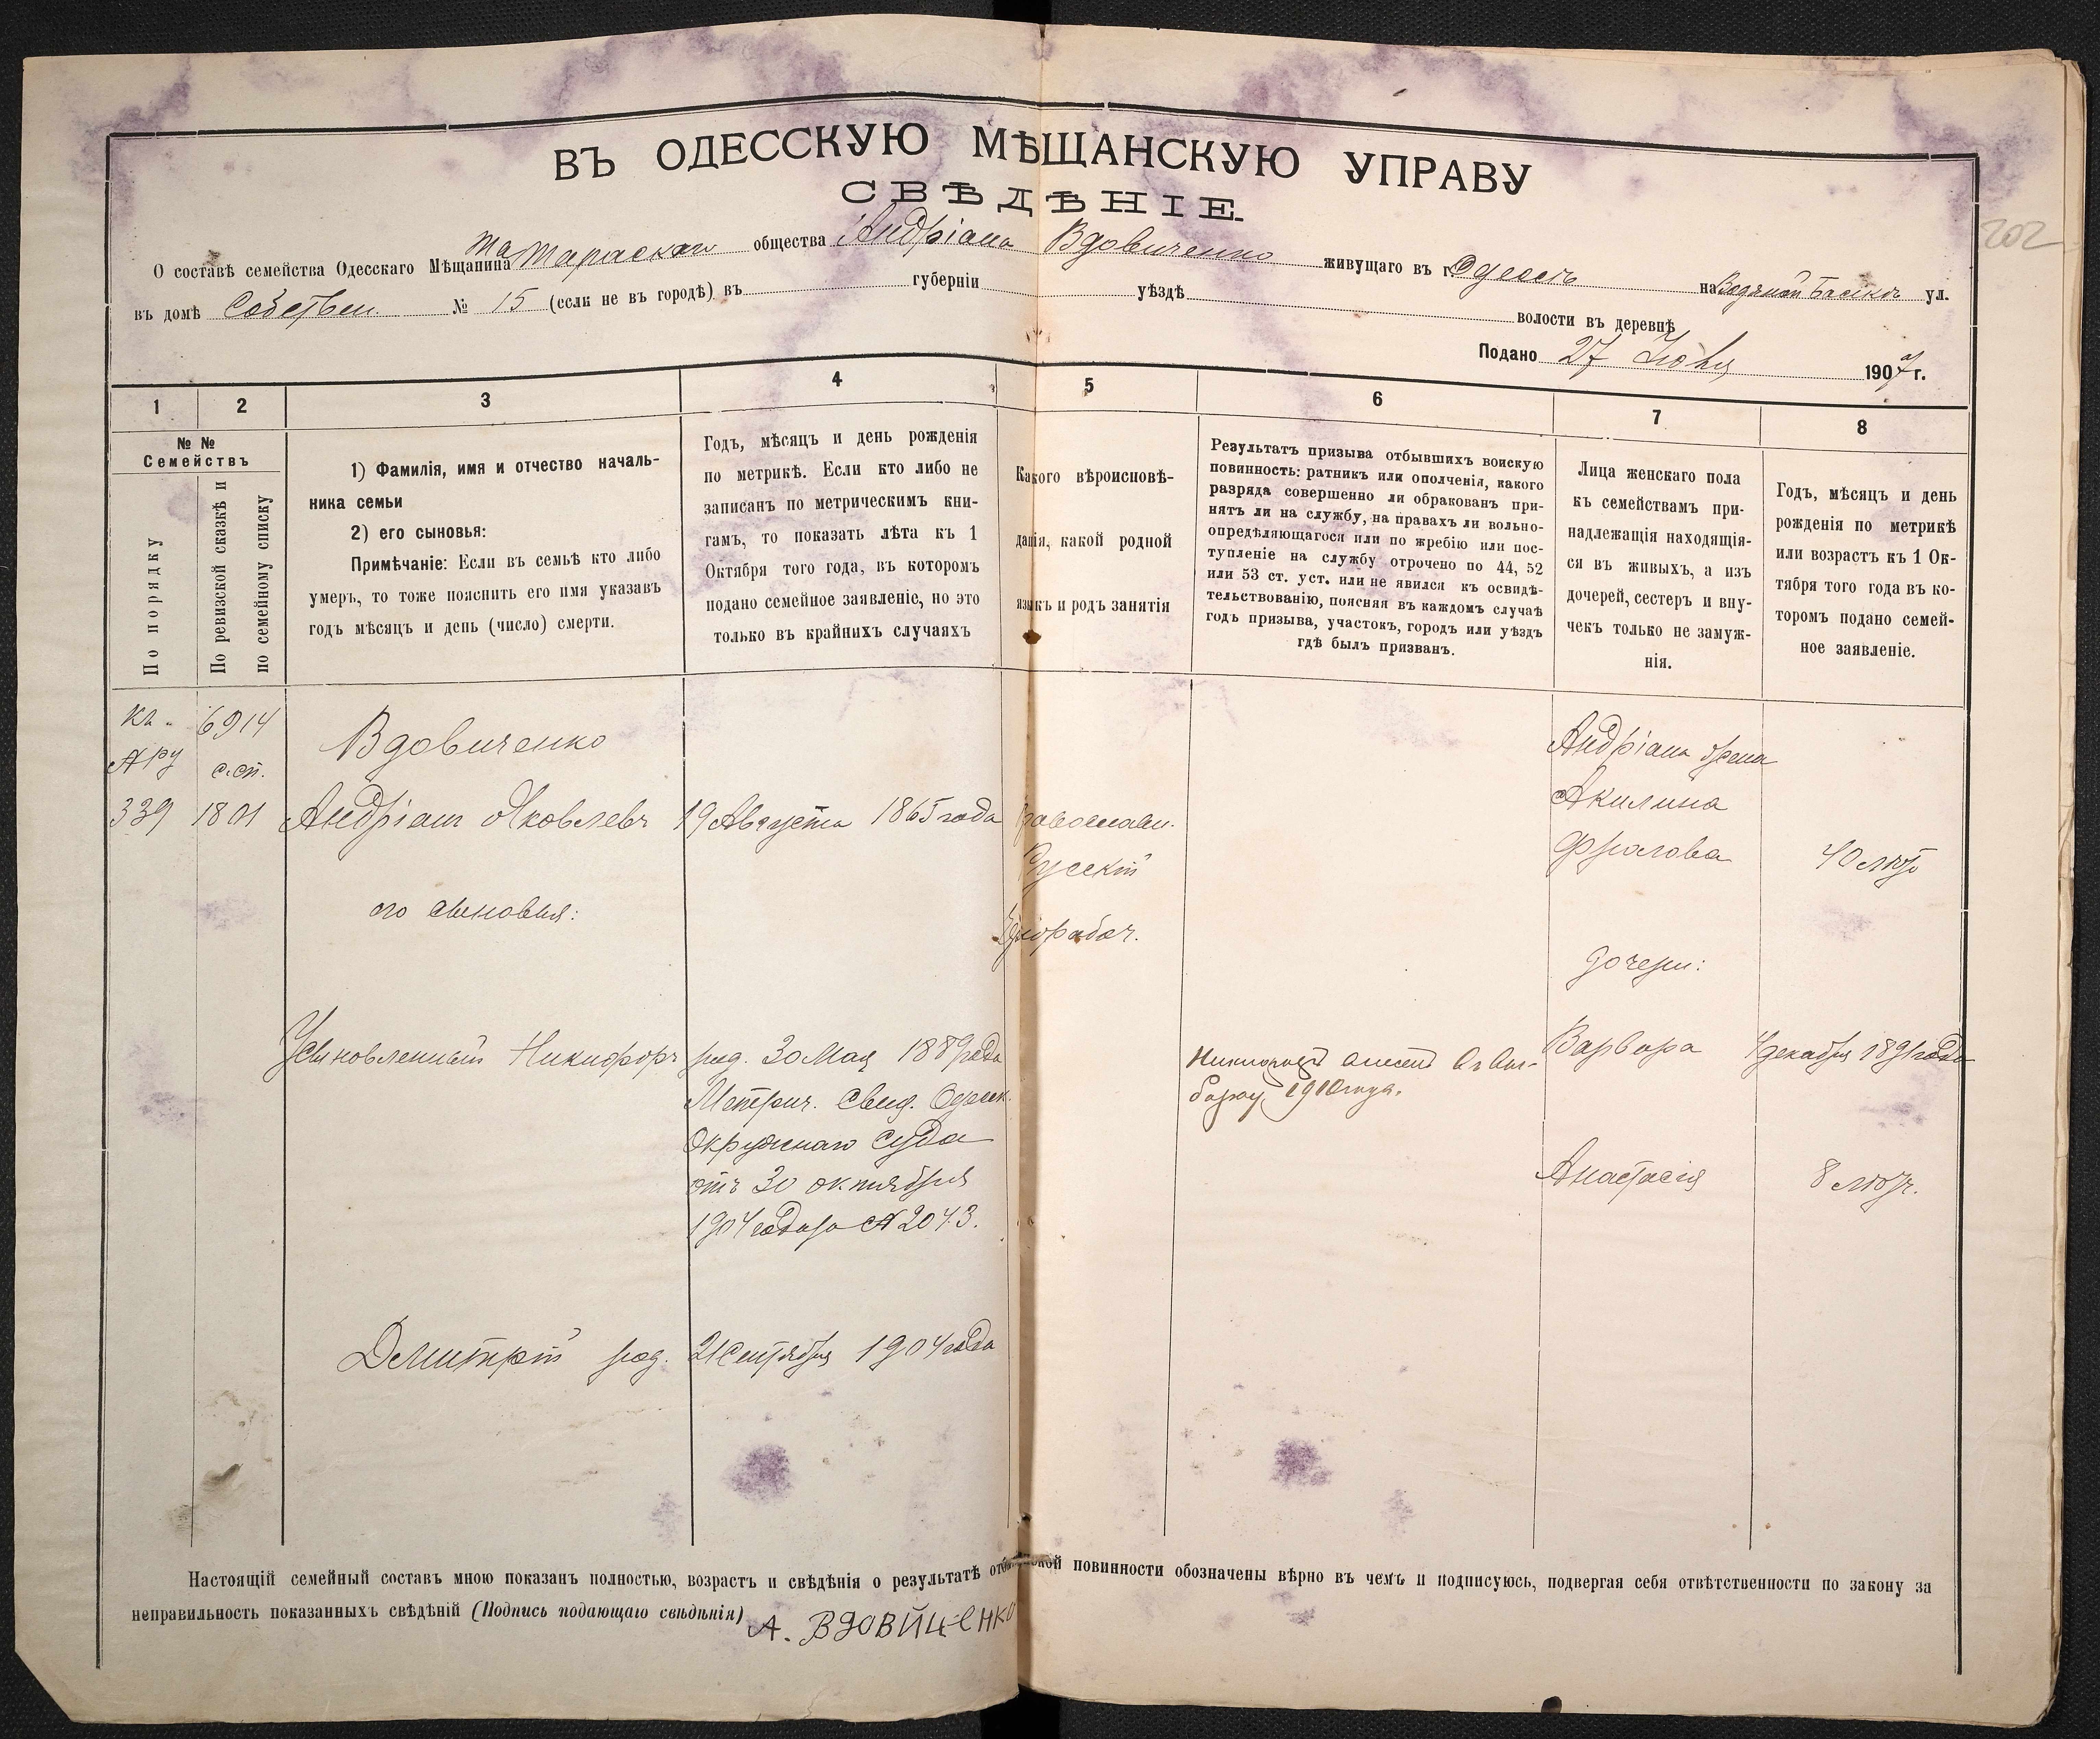 ВЪ ОДЕССКУЮ МѢЩАНСКУЮ УПРАВУ
СВѢДѢНІЕ.
202
О составѣ семейства Одесскаго Мѣщанина общества Андріана Вдовиченко живущаго въ г. Одессѣ на Водяной Балкѣ ул.
въ домѣ Собствен. № 15 (если не въ городѣ) въ губерніи уѣздѣ волости въ деревнѣ
Подано 27 Іюня 1907 г.
1 2 3 4 5 6 7 8
№ №
Семействъ
По порядку
По ревизской сказкѣ и
по семейному списку
1) Фамилія, имя и отчество началь-
ника семьи
2) его сыновья:
Примѣчаніе: Если въ семьѣ кто либо
умеръ, то тоже пояснить его имя указавъ
годъ мѣсяцъ и день (число) смерти.
Годъ, мѣсяцъ и день рожденія
по метрикѣ. Если кто либо не
записанъ по метрическимъ кни-
гамъ, то показать лѣта къ 1
Октября того года, въ которомъ
подано семейное заявленіе, но это
только въ крайнихъ случаяхъ
Какого вѣроисповѣ-
данія, какой родной
языкъ и родъ занятія
Результатъ призыва отбывшихъ воискую
повинность: ратникъ или ополченія, какого
разряда совершенно ли обракованъ при-
нятъ ли на службу, на правахъ ли вольно-
опредѣляющагося или по жребію или пос-
тупленіе на службу отрочено по 44, 52
или 53 ст. уст. или не явился къ освидѣ-
тельствованію, поясняя въ каждомъ случаѣ
годъ призыва, участокъ, городъ или уѣздъ
гдѣ былъ призванъ.
Лица женскаго пола
къ семействамъ при-
надлежащія находящія-
ся въ живыхъ, а изъ
дочерей, сестеръ и вну-
чекъ только не замуж-
нія.
Годъ, мѣсяцъ и день
рожденія по метрикѣ
или возрастъ къ 1 Ок-
тября того года въ ко-
торомъ подано семей-
ное заявленіе.
6914
с.сп.
339 1801
Вдовиченко
Андріанъ Яковлевъ 19 Августа 1865 года
Православн.
Русскій
Чернорабоч.
Андріана жена
Акилина
Фролова 40 лѣтъ
его сыновья:
дочери:
Усыновленный Никифоръ род. 30 Мая 1889 года
Метрич. Свид. Одесск.
Окружнаго Суда
отъ 30 октября
1904 года за № 2043.
1910 года.
Варвара 4 декабря 1891 года
Анастасія 8 лѣтъ.
Дмитрій род. 21 Сентября 1904 года
Настоящій семейный составъ мною показанъ полностью, возрастъ и свѣдѣнія о результатѣ повинности обозначены вѣрно въ чемъ и подписуюсь, подвергая себя отвѣтственности по закону за
неправильность показанныхъ свѣдѣній (Подпись подающаго свѣдѣнія) А. Вдовиценко